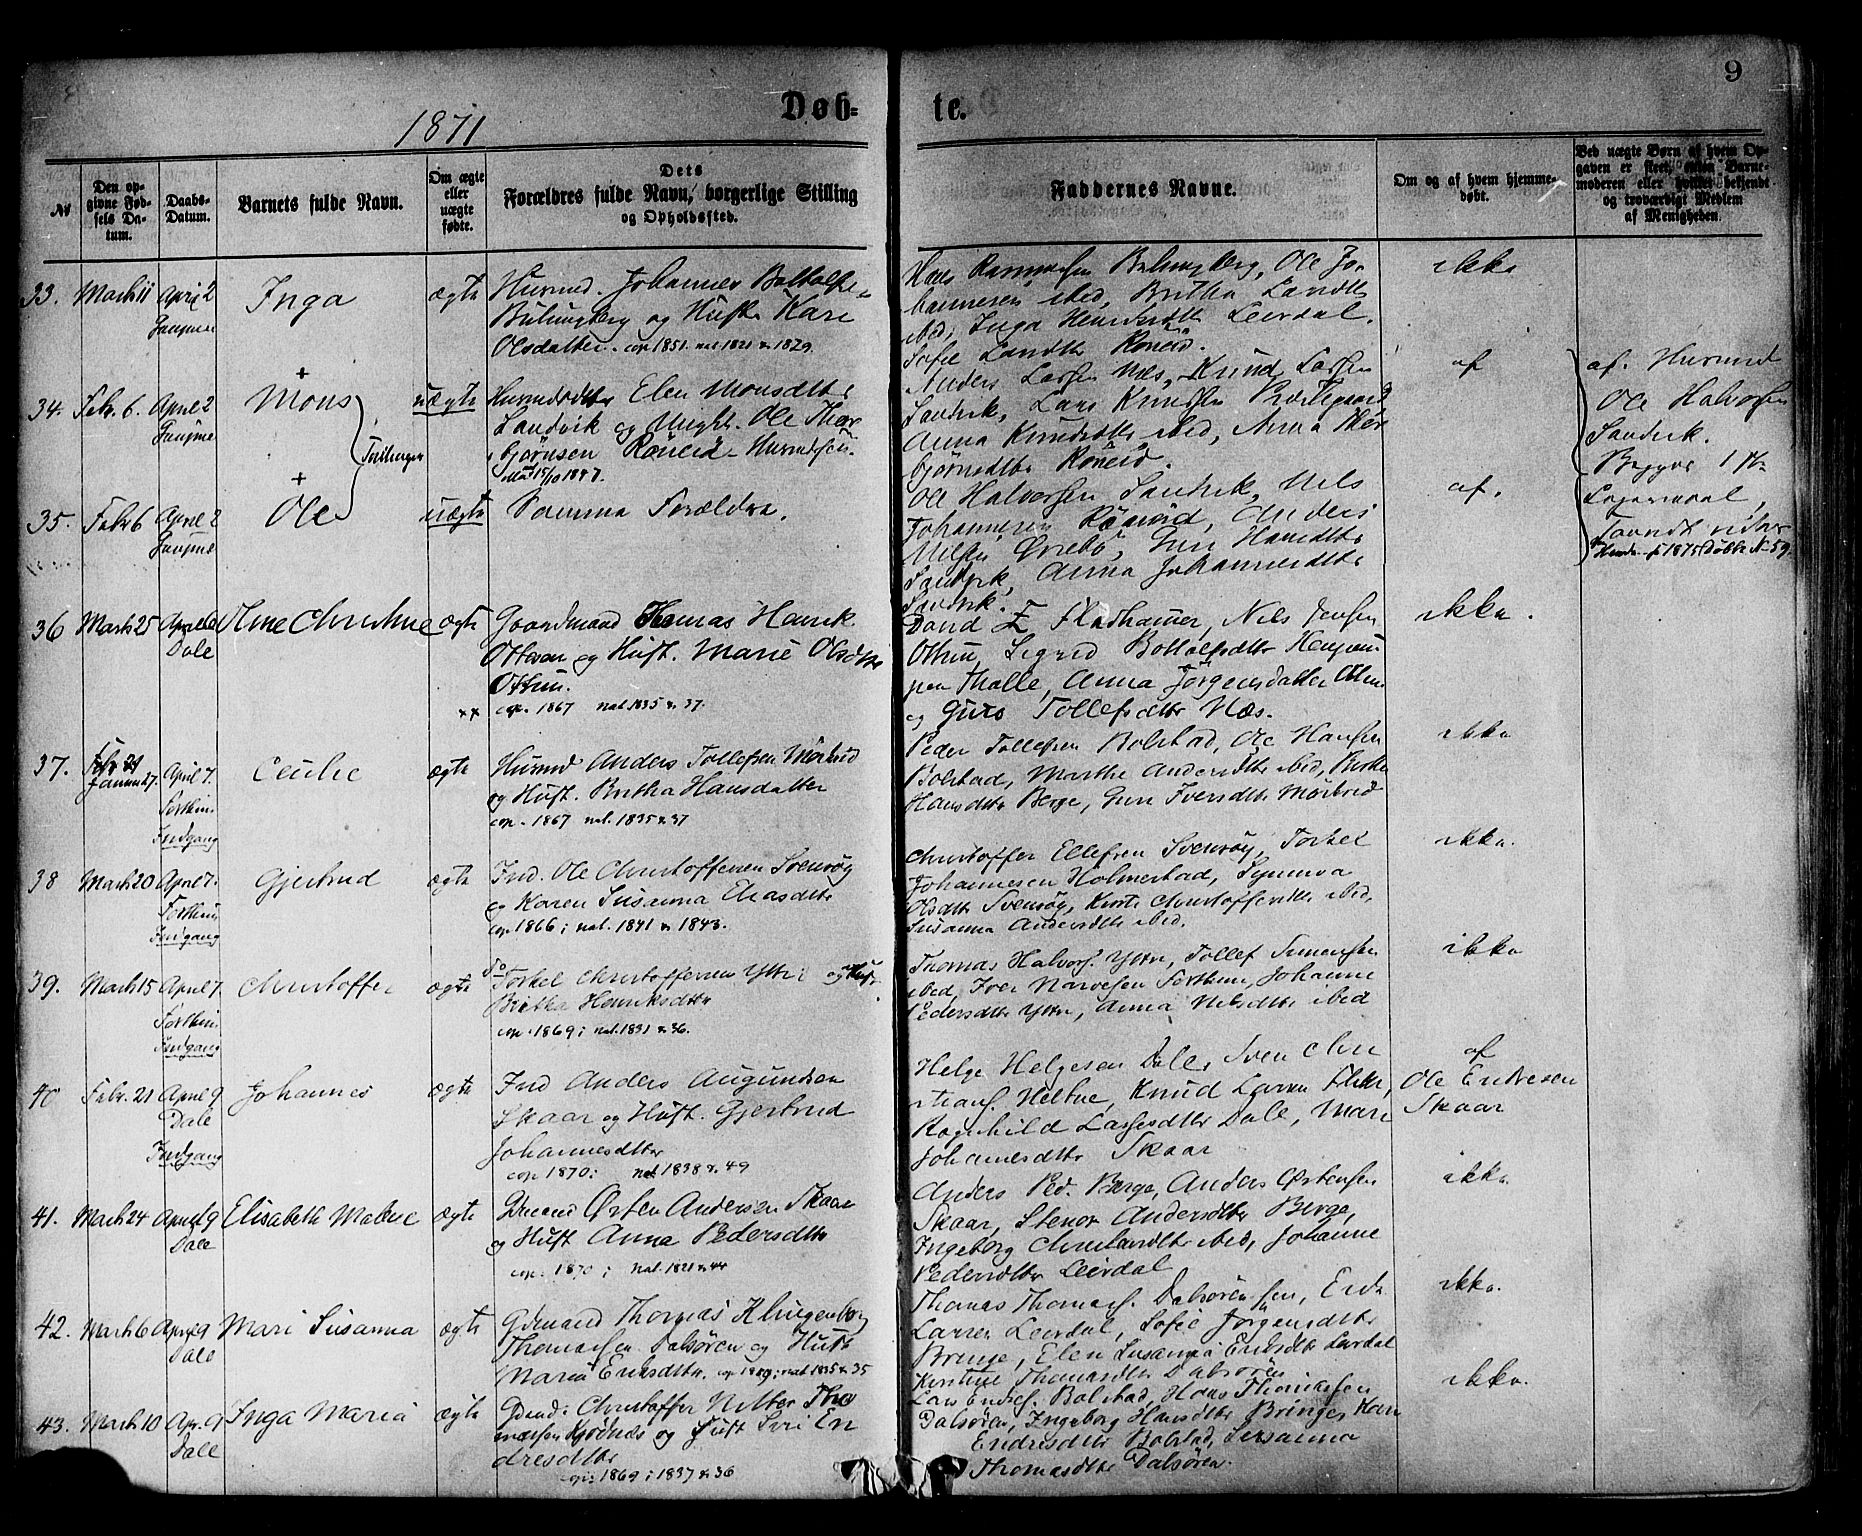 9
1871
Døb-
te.
№
Den op-
givne Fød-
sels Da-
tum.
Daabs-
Datum.
Barnets fulde Navn.
Om ægte
eller
uægte
fødte.
Dets
Forældres fulde Navn, borgerlige Stilling
og Opholdssted.
Faddernes Navne.
Om og af hvem hjemme-
døbt.
Ved uægte Børn af hvem Op-
gaven er skeet, enten Barne-
moderen eller hvilket bekjendt
og troværdigt Medlem
af Menigheden.
33. Marts 11 April 2
Gaupne
Inga
ægte
Husmd. Johannes Bottolfs.
og Hustr. Kari
Olsdatter. cop 1851. nat. 1821 & 1829.
Hans Rasmussen Ole Jo-
hannesen ibed, Britha Larsdtr
ibed, Inga Henriksdtr Leirdal.
Sofie Larsdtr Røneid.
ikke
34. Febr. 6. April 2
Gaupne
+
Mons
Tvillinger
uægte
Elen Monsdtr
Sandvik og Ungk. Ole Thor-
bjørnsen Røneid
15/10 1847.
Anders Larsen Næs, Knud Larsen
Sandvik, Lars Knudsen
Anna Knudsdtr ibed, Anna Thor-
bjørnsdtr Røneid.
af
af. Husmd
Ole Halvorsen
Sandvik.
Begges 1 ste
Leiermaal,
i 1875 Døbte N 59.
35. Febr 6 April 2
Gaupne
+
Ole
uægte
Samme Forældre.
Ole Halvorsen Sandvik, Nils
Johannesen Røneid, Anders
Nilsen Guri Hansdtr
Sandvik, Anna Johannesdtr
Sandvik.
af.
36 Marts 25
Dale
Ane Christine
ægte
Gaardmand Thomas Henrik
Ottesen og Hust. Marie Olsdtr
Ottum.
xx cop. 1867 nat. 1835 & 37.
Nils Jensen
Ottum, Sigrid Bottolfsdtr
Anna Jørgensdatter
og Guro Tollefsdtr Næs.
ikke.
37. Januar 27. April 7.
Forthun
Indgang
Cecilie
ægte
Husmd Anders Tollefsen Mørkrid
og Hust. Britha Hansdatter
cop. 1867 nat. 1835 & 37
Peder Tollefsen Bolstad, Ole Hansen
Bolstad, Marthe Andersdtr ibed,
Hansdtr Berge, Guri Iversdtr Mørkrid
ikke
38 Marts 20 April 7.
Forthun
Indgang
Gjertrud
ægte
Ind. Ole Christoffersen Svensøy
og Karen Susanna Eliasdtr
cop. 1866; nat. 1841 & 1843.
Christoffer Ellefsen Svensøy, Torkel
Johannesen Holmestad, Synneva
Olsdtr Svensøy, Kirsti Christoffersdtr ibed,
Susanna Andersdtr ibed.
ikke.
39. Marts 15 April 7
Forthun
Indgang
Christoffer
ægte
Torkel Christoffersen Yttri og Hust
Britha Henriksdtr
cop. 1869; nat. 1831 & 36.
Thomas Halvors. Yttri, Tollef Simensen
ibed, Iver Narvesen Forthun, Johanne
Pedersdtr Yttri, Anna Nilsdtr ibed
ikke
40 Febr. 21 April 9
Dale
Indgang
Johannes
ægte
Ind Anders Augundsen
Skaar og Hust. Gjertrud
Johannesdtr
cop 1870; nat 1838 & 49
Helge Helgesen Dale, Sven Chri
stians. Heltne, Knud Larsen
Ragnhild Lassesdtr Dale, Mari
Johannesdtr Skaar
af
Ole Endresen
Skaar
41. Marts 24 April 9
Dale
Elisabeth Malene
ægte
Østen Andersen Skaar
og Hust Anna Pedersdtr
cop. 1870; nat. 1821 & 44
Anders Ped. Berge, Anders Østensen
Skaar, Andersdtr Berge,
Ingeborg Christiansdtr ibed, Johanne
Pedersdtr Leirdal
ikke
42. Marts 6 Apr. 9
Dale
Mari Susanna
ægte
Gdmand Thomas Klingenberg
Thomassen Dalsøren og Hust
Maria Eriksdtr. nat 1835 & 35
Thomas Thomas. Dalsøren, Erik
Larsen Leirdal, Sofie Jørgensdtr
Bringe, Elen Susanna Eriksdtr Leirdal
Kirstine Thomasdtr Dalsøren
ikke.
43. Marts 10 Apr. 9
Dale
Inga Maria
ægte
Christoffer Nitter Tho
massen Kjødnæs og Hust Siri En
dresdtr
cop: 1869; 1837 & 36
Lars Endres. Bolstad, Hans Thomassen
Dalsøren, Ingeborg Hansdtr Bringe, Kari
Endresdtr Bolstad, Susanna
Thomasdtr Dalsøren.
ikke.